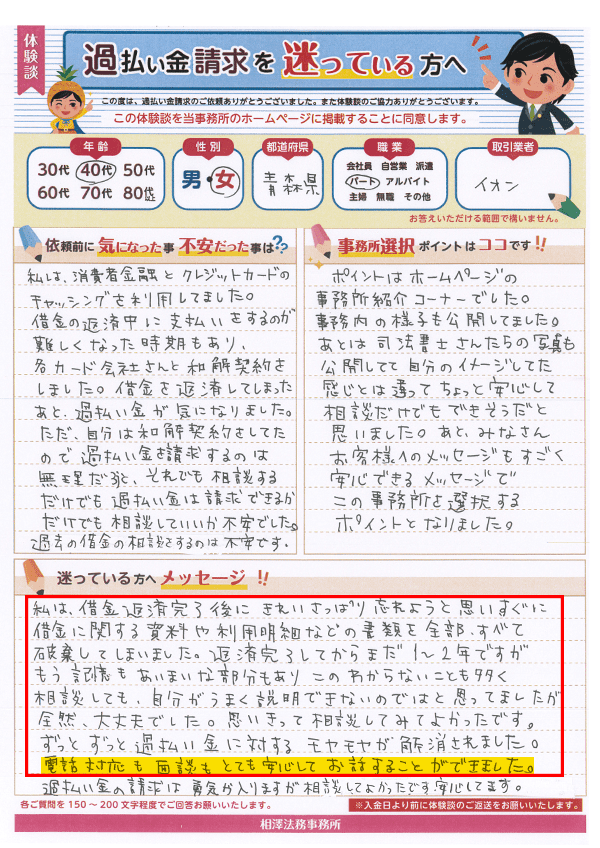 体験談
過払い金請求を迷っている方へ
この度は、過払い金請求のご依頼ありがとうございました。また体験談のご協力ありがとうございます。
この体験談を当事務所のホームページに掲載することに同意します。
年齢
30代 40代 50代
60代 70代 80代
性別
男・女
都道府県
青森県
職業
会社員 自営業 派遣
パート アルバイト
主婦 無職 その他
取引業者
イオン
お答えいただける範囲で構いません。
依頼前に気になった事 不安だった事は??
私は、消費者金融とクレジットカードの
キャッシングを利用してました。
借金の返済中に支払いをするのが
難しくなった時期もあり、
各カード会社さんと和解契約を
しました。借金を返済してしまった
あと、過払い金が気になりました。
ただ、自分は和解契約をしてた
ので過払い金を請求するのは
無理だろうと、それでも相談する
だけでも過払い金は請求できるか
だけでも相談していいか不安でした。
過去の借金の相談をするのは不安です。
事務所選択ポイントはココです!!
ポイントはホームページの
事務所紹介コーナーでした。
事務所内の様子も公開してました。
あとは司法書士さんたちの写真も
公開してて自分のイメージしてた
感じとは違ってちょっと安心して
相談だけでもできそうだと
思いました。あと、みなさん
お客様へのメッセージもすごく
安心できるメッセージで
この事務所を選択する
ポイントとなりました。
迷っている方へメッセージ!!
私は、借金返済完了後にきれいさっぱり忘れようと思いすぐに
借金に関する資料や利用明細などの書類を全部、すべて
破棄してしまいました。返済完了してからまだ1〜2年ですが
もう記憶もあいまいな部分もありこのわからないことも多く
相談しても、自分がうまく説明できないのではと思ってましたが
全然、大丈夫でした。思いきって相談してみてよかったです。
ずっとずっと過払い金に対するモヤモヤが解消されました。
電話対応も面談もとても安心してお話することができました。
過払い金の請求は勇気が入りますが相談してよかったです安心してます。
各ご質問を150〜200文字程度でご回答お願いいたします。
※入金日より前に体験談のご返送をお願いいたします。
相澤法務事務所